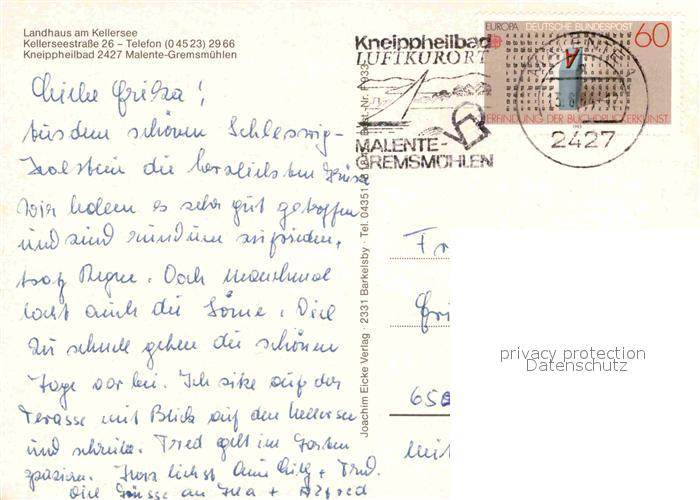 Landhaus am Kellersee
Kellerseestraße 26 – Telefon (0 45 23) 29 66
Kneippheilbad 2427 Malente-Gremsmühlen
EUROPA DEUTSCHE BUNDESPOST 60
A
ERFINDUNG DER BUCHDRUCKERKUNST
Kneippheilbad
LUFTKURORT
MALENTE-
GREMSMÜHLEN
2427
Aus dem schönen Schleswig-
Holstein die herzlichsten Grüsse
Wir haben es sehr gut getroffen
und sind rundum zufrieden,
trotz Regen. Doch manchmal
lacht auch die Sonne. Viel
zu schnell gehen die schönen
Tage vorbei. Ich sitze auf der
Terasse mit Blick auf den Kellersee
und schreibe. Fred geht im Garten
spazieren. Herzlichst
Viele Grüsse an + Alfred
Joachim Eicke Verlag · 2331 Barkelsby · Tel. 04351
Fr
650
privacy protection
Datenschutz